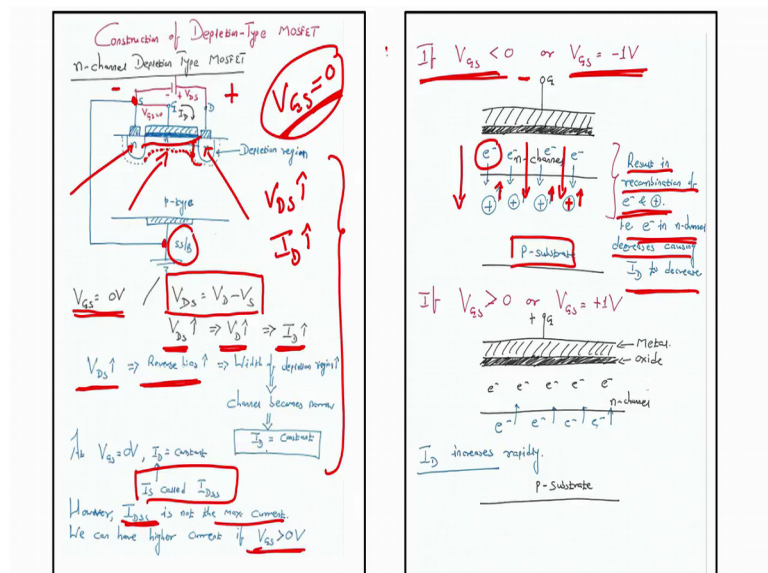 Construction of Depletion-Type MOSFET
n-channel Depletion Type MOSFET
- +
VGS=0
- + VDS
S G ID D
VGS=0
n n
Depletion region
P-type
SS/B
VDS↑
ID↑
VGS = 0V
VDS = VD - VS
VDS↑ ⇒ VD↑ ⇒ ID↑
VDS↑ ⇒ Reverse bias↑ ⇒ Width of depletion region↑
Channel becomes narrow
ID = Constant
At VGS=0V, ID = Constant
Is called IDSS
However, IDSS is not the max current.
We can have higher current if VGS>0V
If VGS < 0 or VGS = -1V
- G
e- e- n-channel e- e-
+ + + +
P-substrate
Result in
recombination of
e- & +.
ie e- in n-channel
decreases causing
ID to decrease
If VGS > 0 or VGS = +1V
+ G
Metal
oxide
e- e- e- e- e-
n-channel
e- e- e- e-
ID increases rapidly.
P-substrate